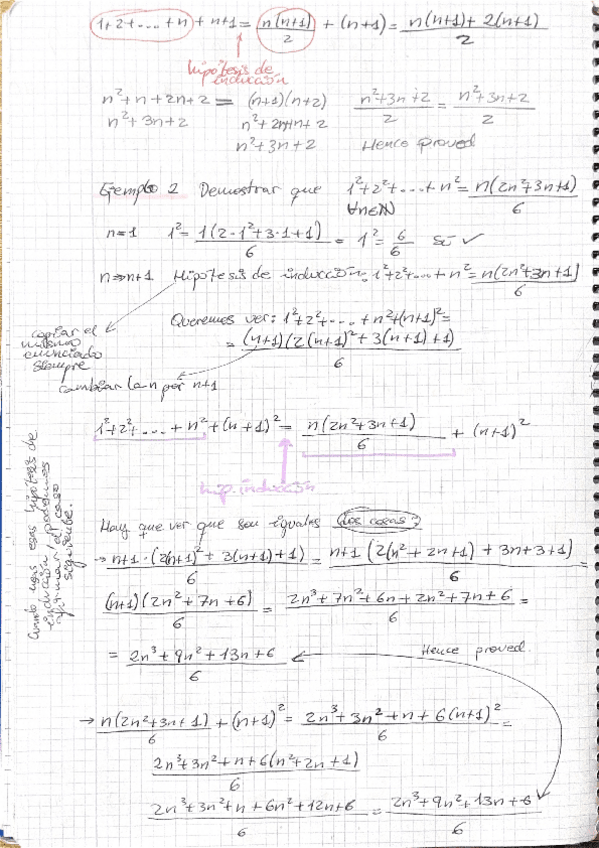 1+2+....+n + n+1 = n(n+1)/2 + (n+1) = n(n+1)+2(n+1)/2
hipótesis de
inducción
n²+n+2n+2 = (n+1)(n+2) n²+3n+2/2 = n²+3n+2/2
n²+3n+2 n²+2n+n+2
n²+3n+2 Hence proved
Ejemplo 2 Demostrar que 1²+2²+....+n² = n(2n²+3n+1)/6
∀n∈ℕ
n=1 1² = 1(2·1²+3·1+1)/6 = 1² = 6/6 Sí ✓
n⇒n+1 Hipótesis de inducción: 1²+2²+....+n² = n(2n²+3n+1)/6
Queremos ver: 1²+2²+....+n²+(n+1)² =
= (n+1)(2(n+1)²+3(n+1)+1)/6
copiar el
mismo
enunciado
siempre
cambiar la n por n+1
1²+2²+....+n²+(n+1)² = n(2n²+3n+1)/6 + (n+1)²
hip. inducción
Cuando usas esas hipótesis de
inducción, podemos
afirmar el caso
siguiente.
Hay que ver que son iguales las cosas:
→ n+1·(2(n+1)²+3(n+1)+1)/6 = n+1(2(n²+2n+1)+3n+3+1)/6 =
(n+1)(2n²+7n+6)/6 = 2n³+7n²+6n+2n²+7n+6/6 =
= 2n³+9n²+13n+6/6 Hence proved.
→ n(2n²+3n+1)/6 + (n+1)² = 2n³+3n²+n+6(n+1)²/6 =
2n³+3n²+n+6(n²+2n+1)/6
2n³+3n²+n+6n²+12n+6/6 = 2n³+9n²+13n+6/6